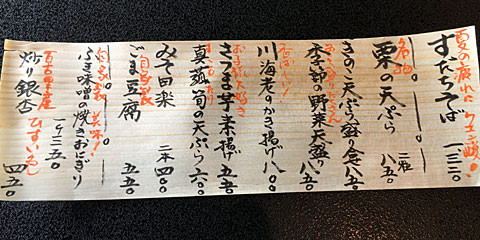 夏の疲れにクエン酸!
すだちそば 一三二〇
名物
栗の天ぷら 二粒 八五〇
きのこ天ぷら盛り合 八五〇
季節の野菜天盛
川海老のかき揚げ 八〇〇
さつま芋素揚げ 五五〇
真菰筍の天ぷら 六〇〇
みそ田楽 二本 四〇〇
自家製
ごま豆腐 五五〇
自家製 美味!
ふき味噌の焼きおにぎり
一ケ 三五〇
ひすいいろ
炒り銀杏 四五〇